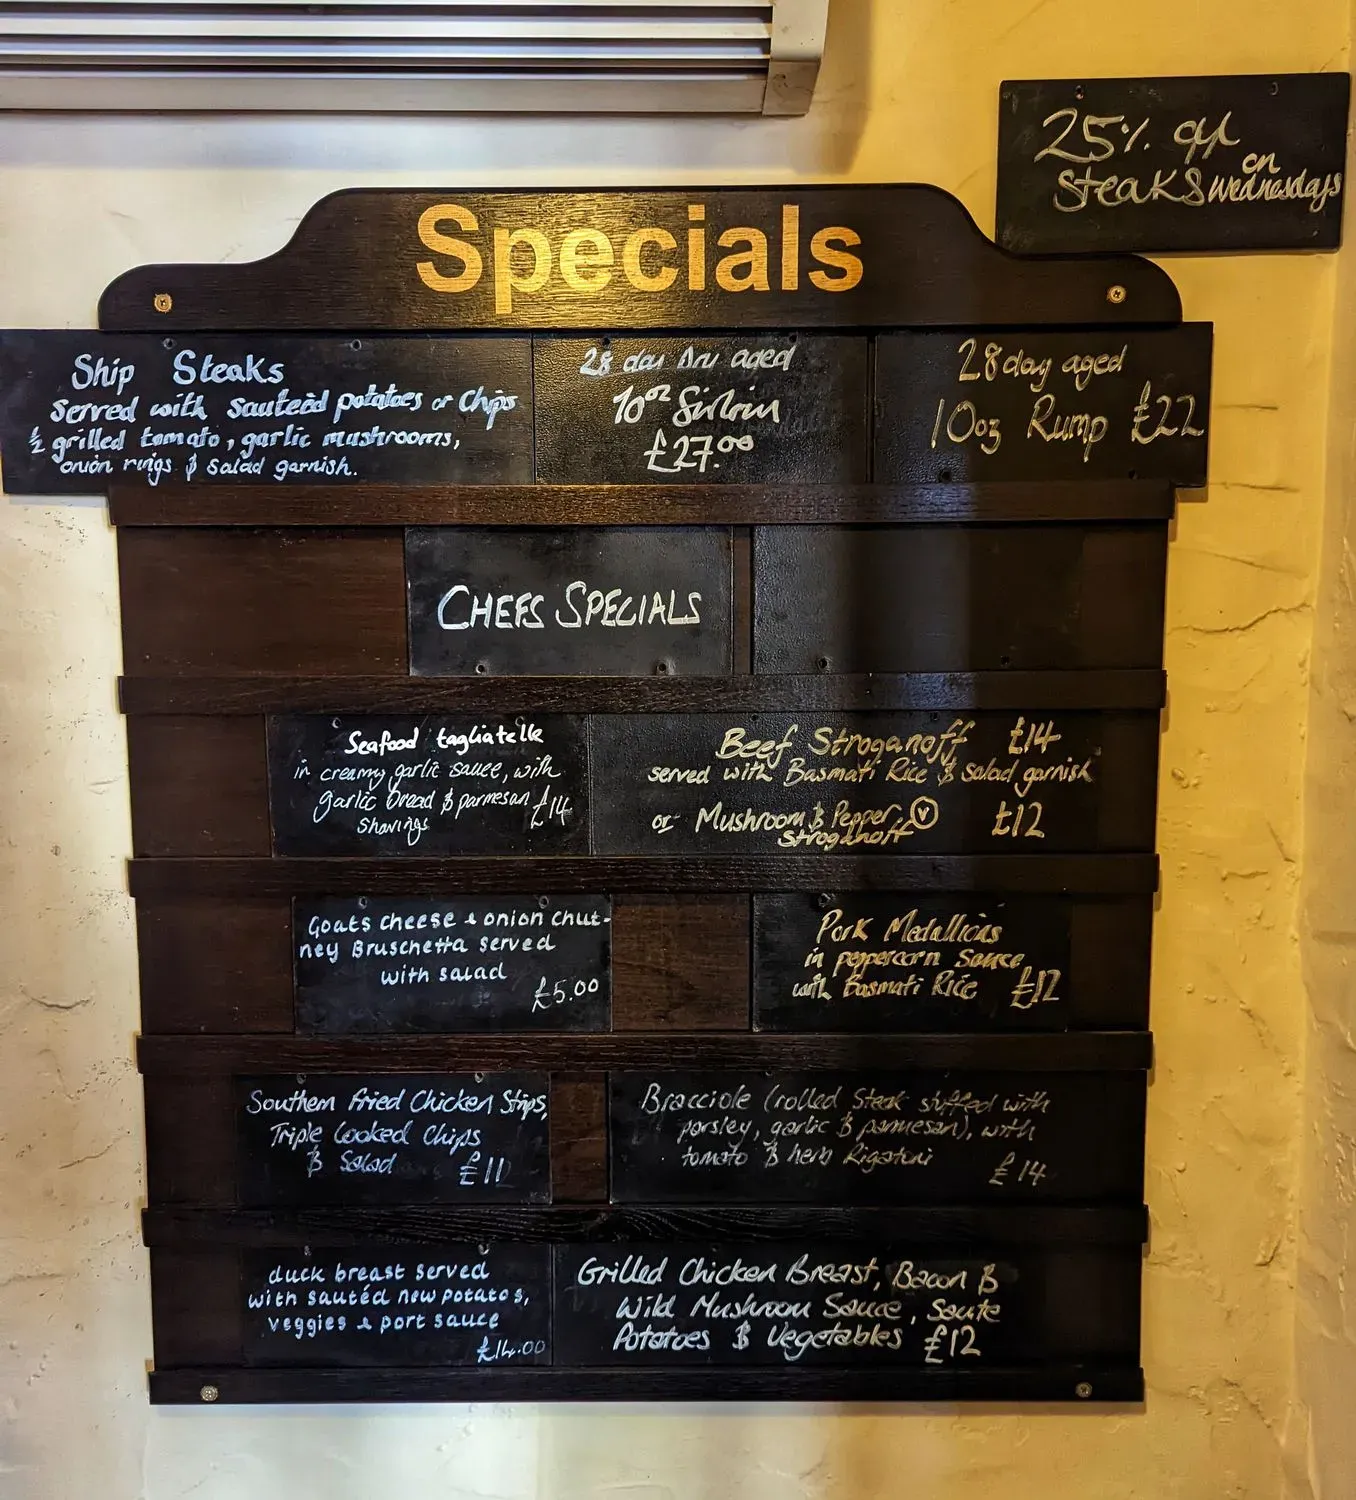 25% off
on
Steaks Wednesdays
Specials
Ship Steaks
Served with Sauteéd potatoes or Chips
½ grilled tomato, garlic mushrooms,
onion rings & salad garnish.
28 day Dry aged
10oz Sirloin
£27.00
28 day aged
10oz Rump £22
CHEFS SPECIALS
Seafood tagliatelle
in creamy garlic sauce, with
garlic bread & parmesan £14
Shavings
Beef Stroganoff £14
served with Basmati Rice & Salad garnish
or Mushroom & Pepper Ⓥ £12
Stroganoff
Goats cheese & onion chut-
ney Bruschetta served
with salad
£5.00
Pork Medallions
in peppercorn Sauce
with Basmati Rice £12
Southern Fried Chicken Strips,
Triple Cooked Chips
& Salad £11
Bracciole (rolled Steak stuffed with
parsley, garlic & parmesan), with
tomato & herb Rigatoni £14
duck breast served
with sautéd new potatos,
veggies & port sauce
£14.00
Grilled Chicken Breast, Bacon &
Wild Mushroom Sauce, Saute
Potatoes & Vegetables £12